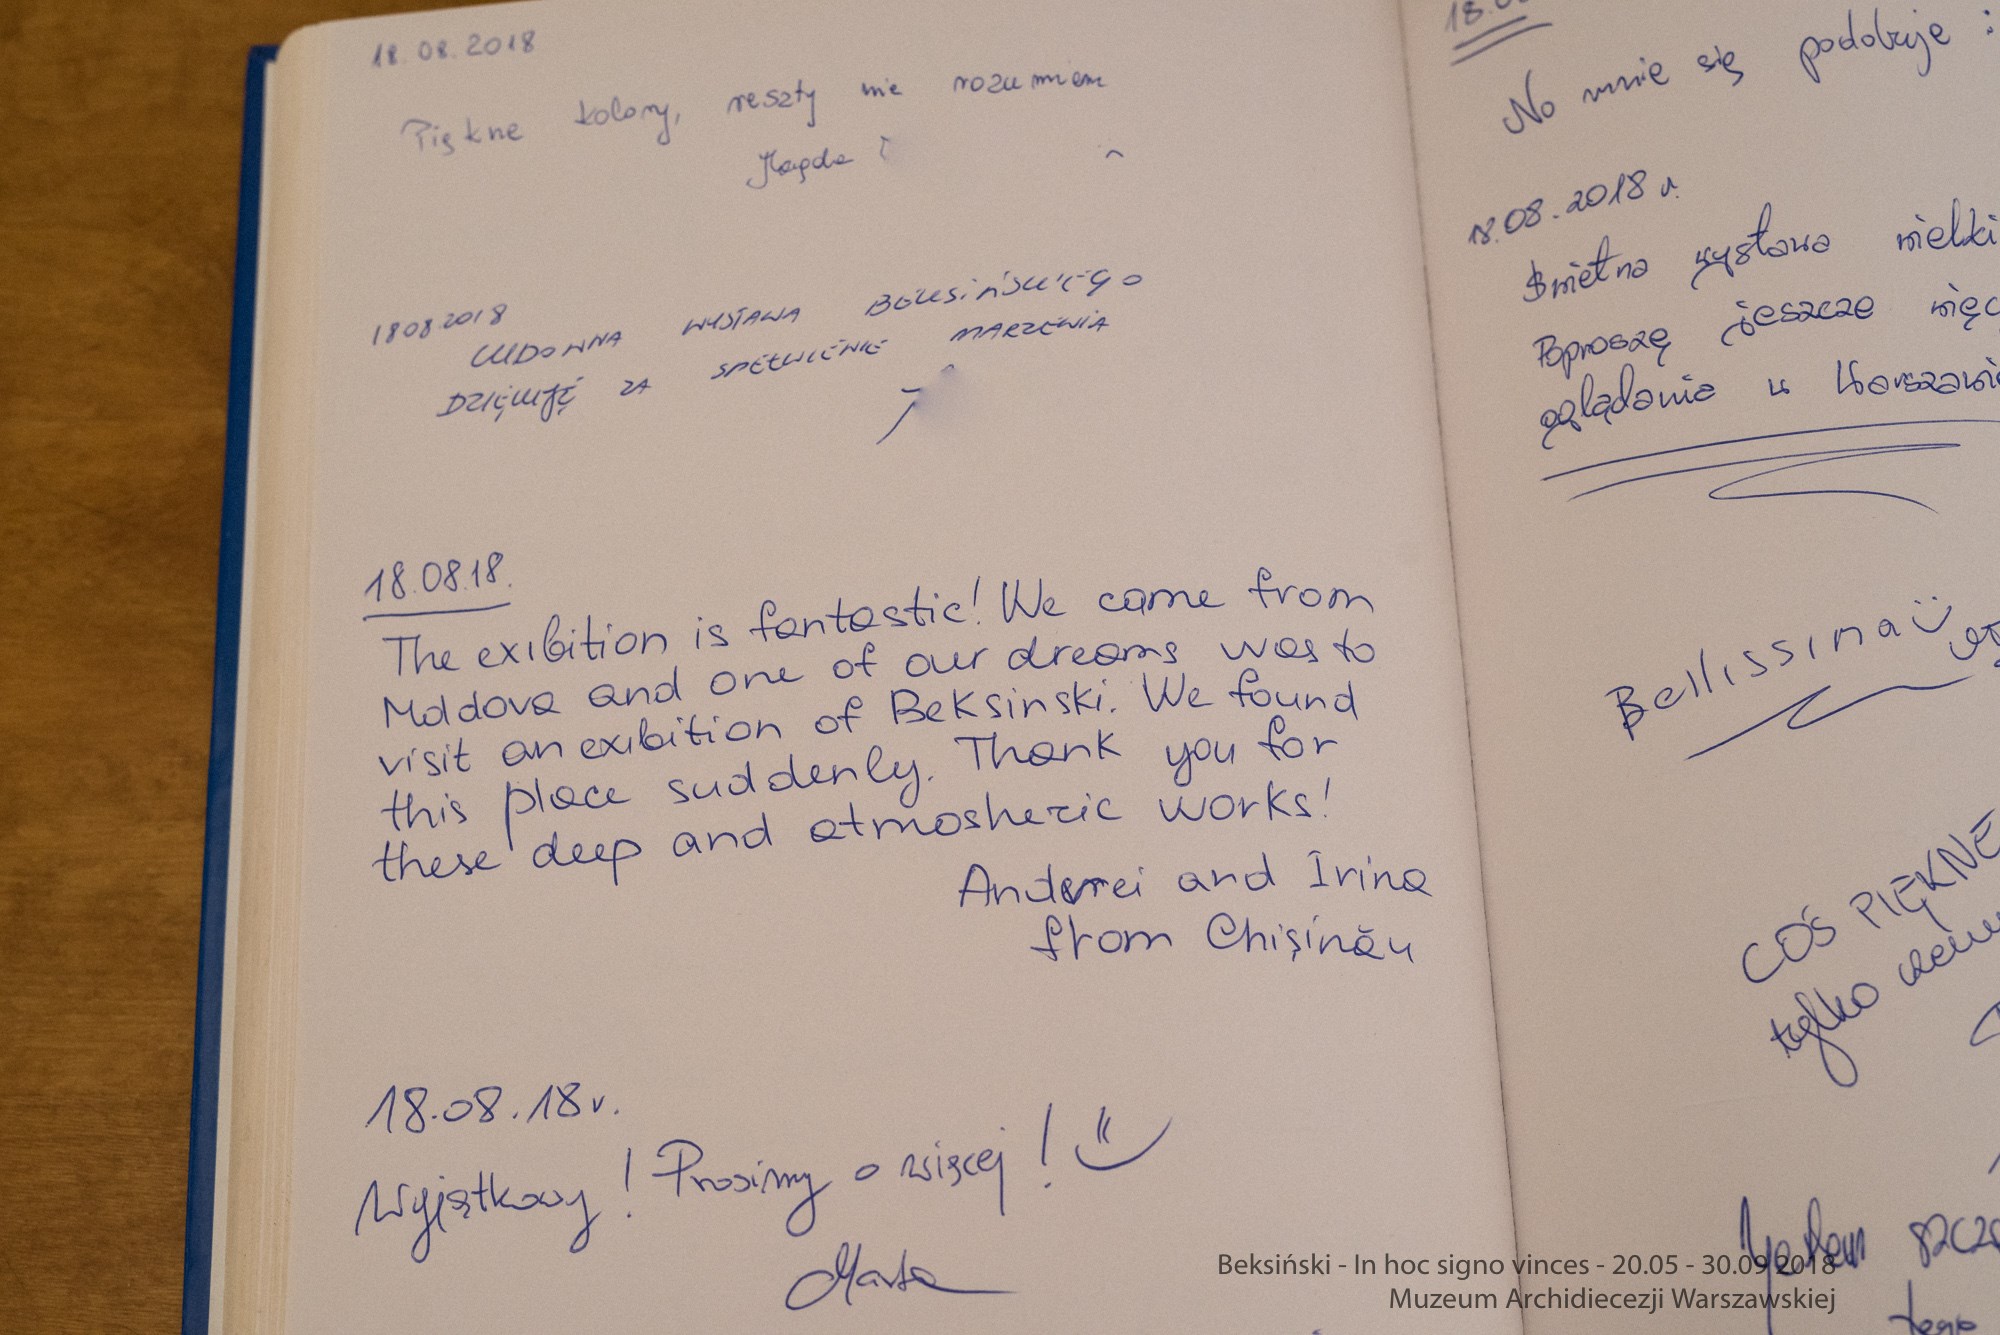 18.08.2018
Piękne kolory, reszty nie rozumiem
Magda
18 08 2018
CUDOWNA WYSTAWA BEKSIŃSKIEGO
DZIĘKUJĘ ZA SPEŁNIENIE MARZENIA
18.08.18.
The exibition is fantastic! We came from
Moldova and one of our dreams was to
visit an exibition of Beksinski. We found
this place suddenly. Thank you for
these deep and atmosheric works!
Anderei and Irina
from Chișinău
18.08.18r.
Wyjątkowy! Prosimy o więcej!
Marta
No mnie się podobuje :
18.08.2018 r.
Świetna wystawa
Poproszę jeszcze
oglądania w
Bellissima
COŚ PIĘKNE
tylko
Jestem
tego
Beksiński - In hoc signo vinces - 20.05 - 30.09.2018
Muzeum Archidiecezji Warszawskiej